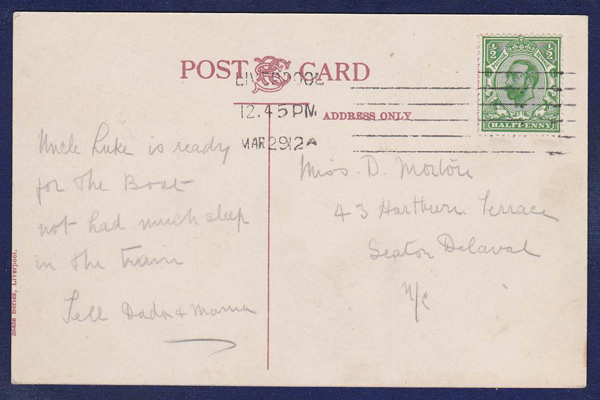 POST CARD
LIVERPOOL
12.45 PM
MAR 29 12 A
ADDRESS ONLY
½ ½
HALFPENNY
Uncle Luke is ready
for the Boat
not had much sleep
in the train
Tell Dada & Mama
Miss. D. Morton
43 Hartburn Terrace
Seaton Delaval
N/c
Series, Liverpool.